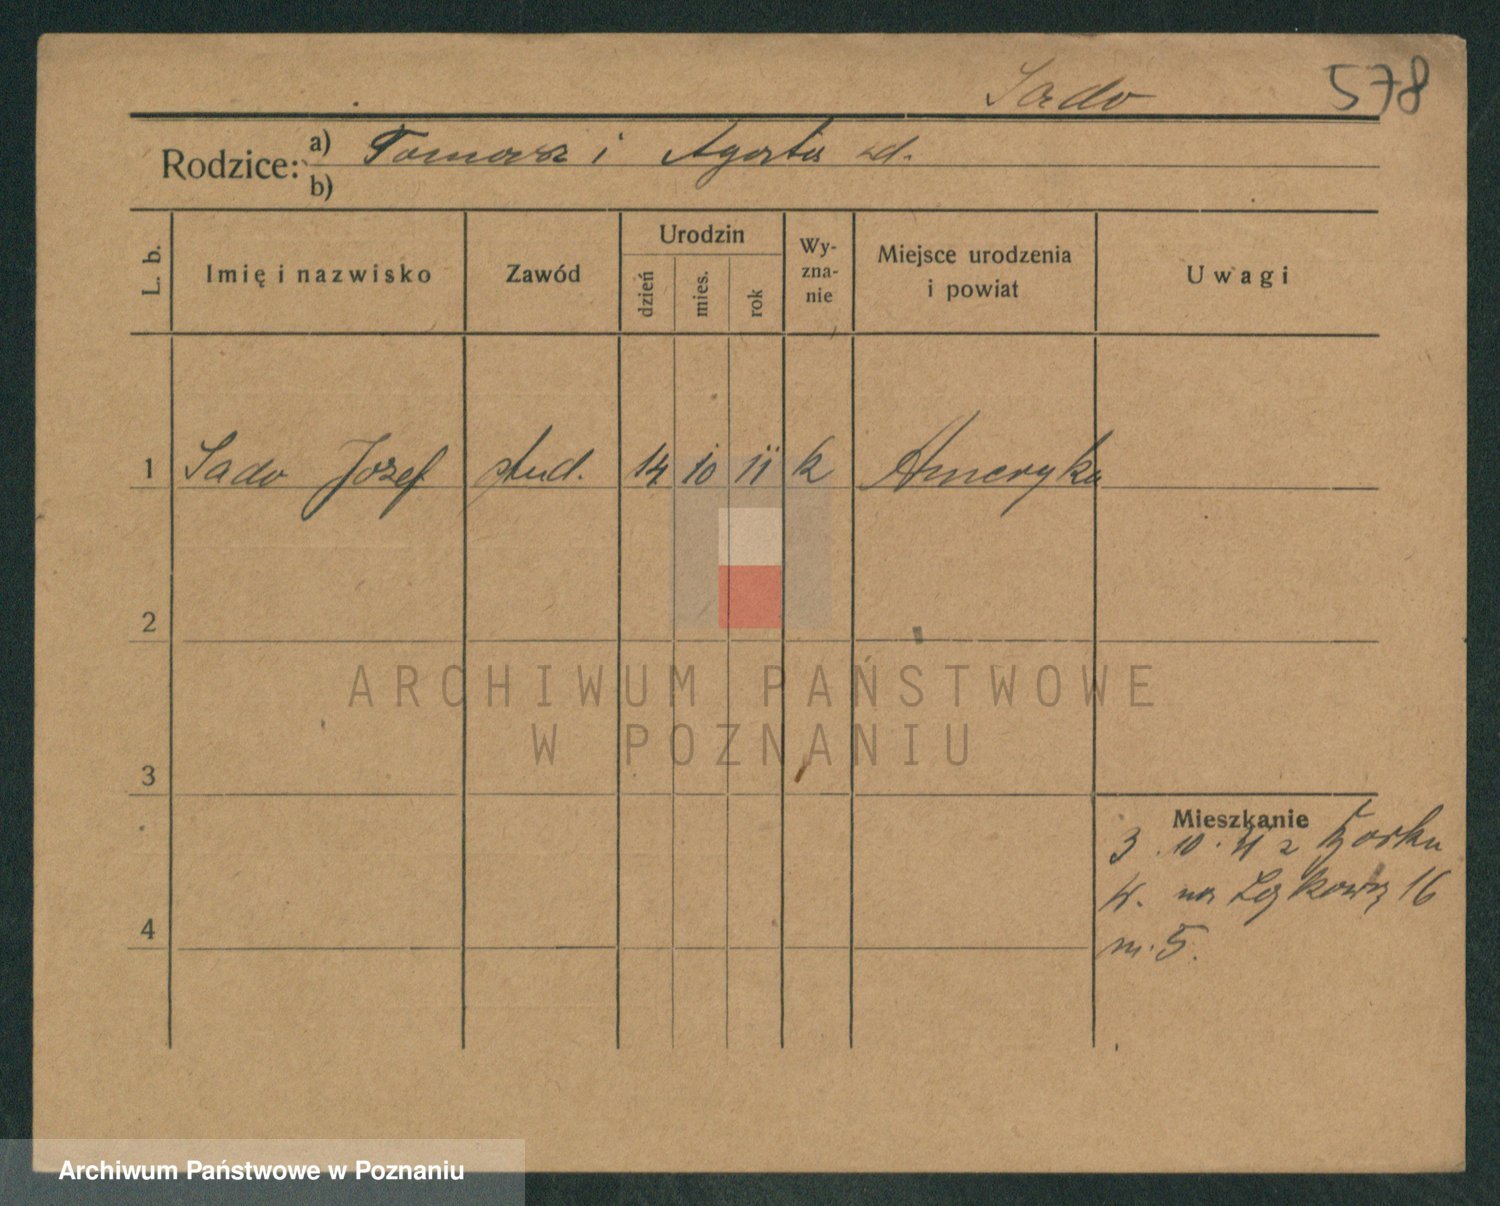 Sado 578
Rodzice: a) Tomasz i Agata zd.
b)
L. b. Imię i nazwisko Zawód Urodzin dzień mies. rok Wy-zna-nie Miejsce urodzenia i powiat Uwagi
1 Sado Józef stud. 14 10 11 k Ameryka
2
ARCHIWUM PAŃSTWOWE
W POZNANIU
3
Mieszkanie
3. 10. z
4 na Łąkową 16
m. 5.
Archiwum Państwowe w Poznaniu